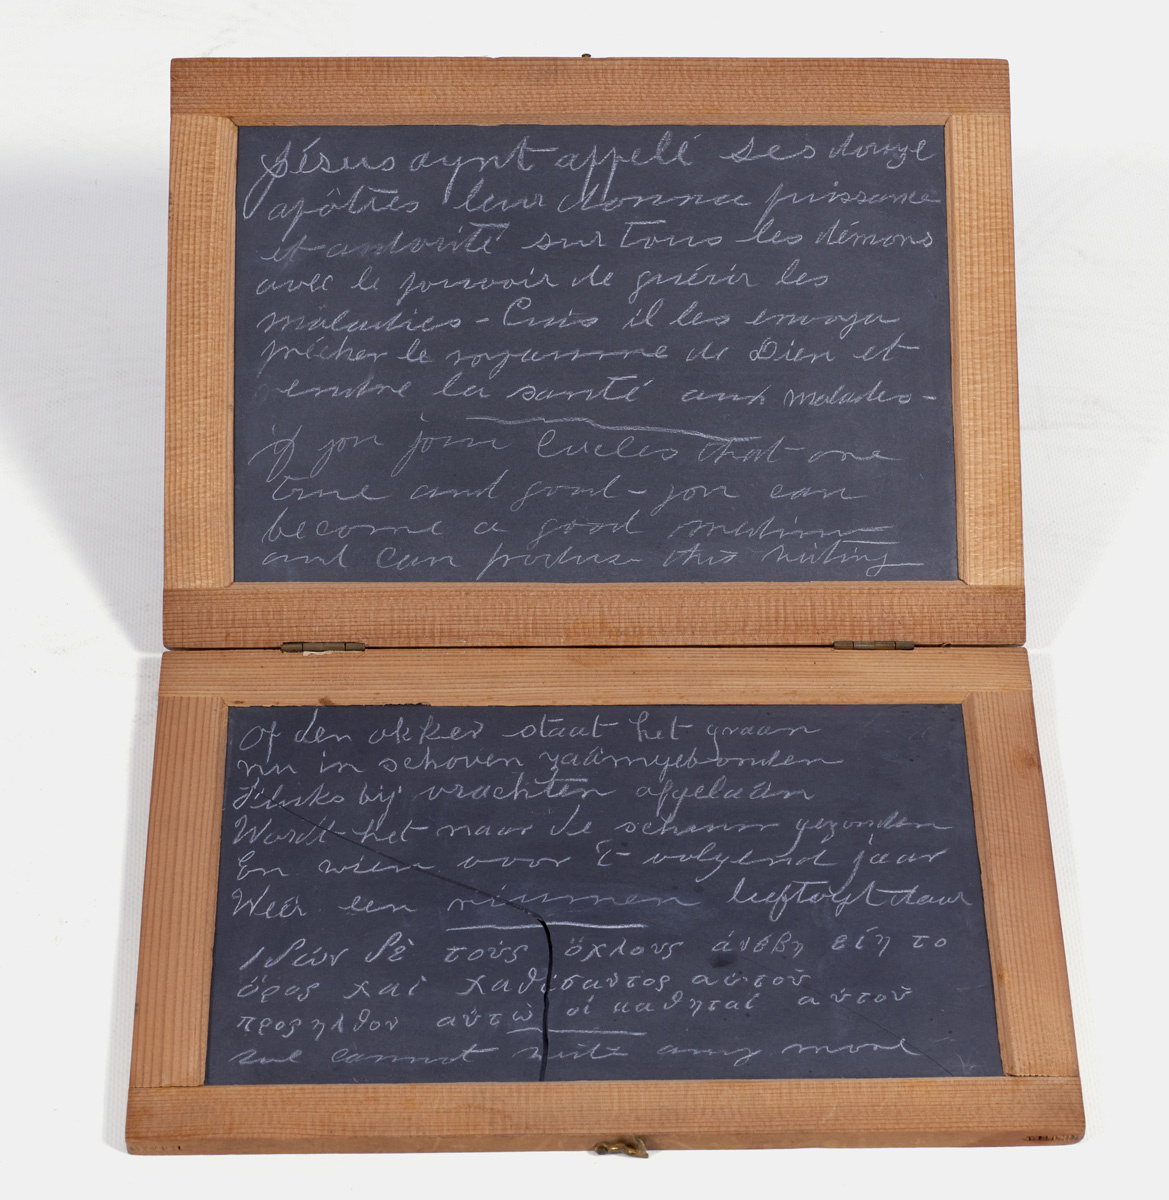 Jésus aynt appelé ses douze
apôtres leur donna puissance
et autorité sur tous les démons
avec le pouvoir de guérir les
maladies - Puis il les envoya
prêcher le royaume de Dieu et
rendre la santé aux malades -
if you join Circles that are
true and good - you can
become a good medium
and can produse this writing
Op den akker staat het graan
nu in schoven zaämgebonden
Fluks bij vrachten afgelaän
Wordt het naar de schuur gezonden
En wien voor 't volgend jaar
Weér een nieuwen daar
ιδών δὲ τοὺς ὄχλους ἀνέβη είη το
ὄρος χαὶ χαθίσαντος αὐτοῦ
προςηλθον αὐτῷ οἱ μαθηταὶ αὐτοῦ
we cannot write any more